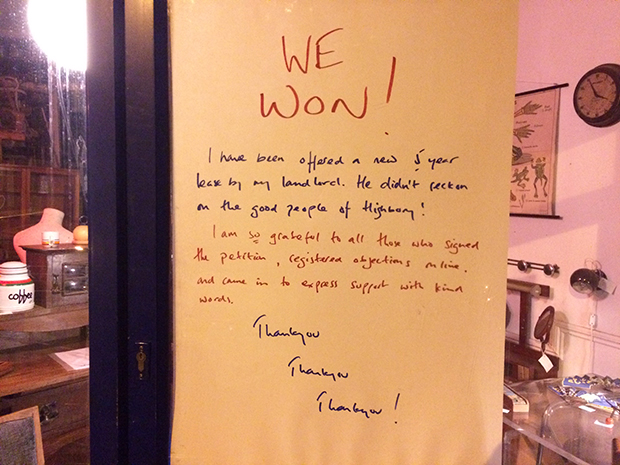 WE
WON!
I have been offered a new 5 year
lease by my landlord. He didn't reckon
on the good people of Highbury!
I am so grateful to all those who signed
the petition, registered objections online.
and came in to express support with kind
words.
Thankyou
Thankyou
Thankyou!
coffee